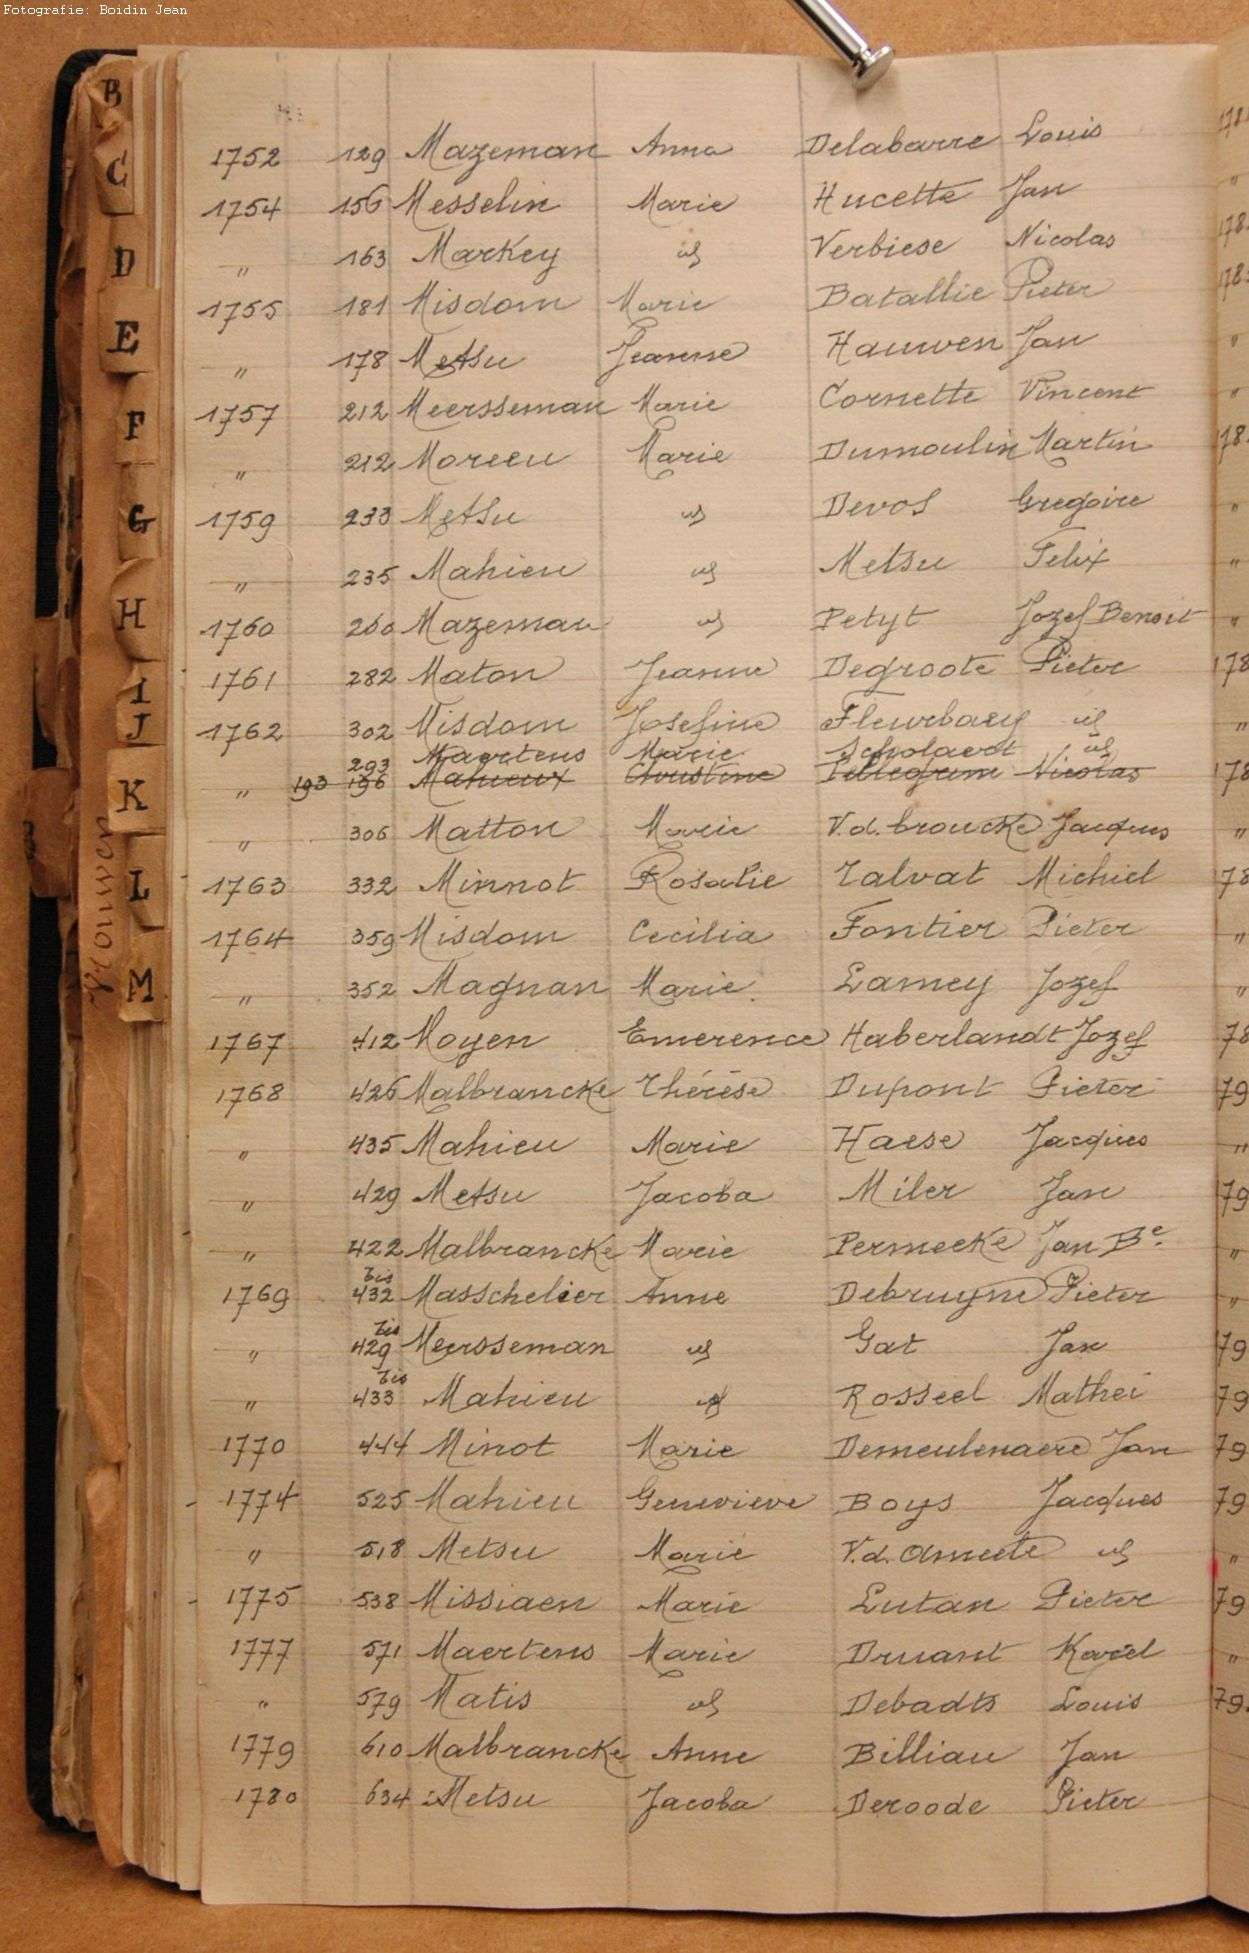 Fotografie: Boidin Jean
1752 129 Mazeman Anna Delabarre Louis
1754 156 Messelin Marie Hucette Jan
" 163 Markey id Verbiese Nicolas
1755 181 Misdom Marie Batallie Pieter
" 178 Metsu Jeanne Hauwen Jan
1757 212 Meersseman Marie Cornette Vincent
" 212 Moreeu Marie Dumoulin Martin
1759 233 Metsu id Devos Gregoire
" 235 Mahieu id Metsu Felix
1760 260 Mazeman id Petyt Jozef Benoit
1761 282 Maton Jeanne Degroote Pieter
1762 302 Misdom Josefine Fleurbaey id
293 Maertens Marie Scholaert id
" 193 196 Mahieux Christine Pellegrim Nicolas
" 306 Matton Marie V.d. broucke Jacques
1763 332 Minnot Rosalie Talvat Michiel
1764 359 Misdom Cecilia Fontier Pieter
" 352 Magnan Marie Lamey Jozef
1767 412 Moyen Emerence Haberlandt Jozef
1768 426 Malbrancke Thérèse Dupont Pieter
" 435 Mahieu Marie Haese Jacques
" 429 Metsu Jacoba Miler Jan
" 422 Malbrancke Marie Permeeke Jan Be.
1769 432 bis Masschelier Anne Debruyne Pieter
" 429 bis Meersseman id Gat Jan
" 433 bis Mahieu id Rosseel Mathei
1770 444 Minot Marie Demeulenaere Jan
1774 525 Mahieu Genevieve Boys Jacques
" 518 Metsu Marie V.d. Ameete id
1775 538 Missiaen Marie Lutan Pieter
1777 571 Maertens Marie Druant Karel
" 579 Matis id Debadts Louis
1779 610 Malbrancke Anne Billiau Jan
1780 634 Metsu Jacoba Deroode Pieter
B
C
D
E
F
G
H
I
J
K
L
M
Vrouwen